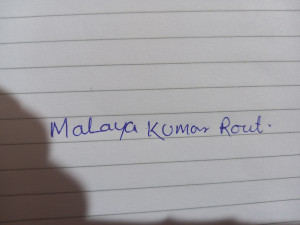 Malaya Kumar Rout.